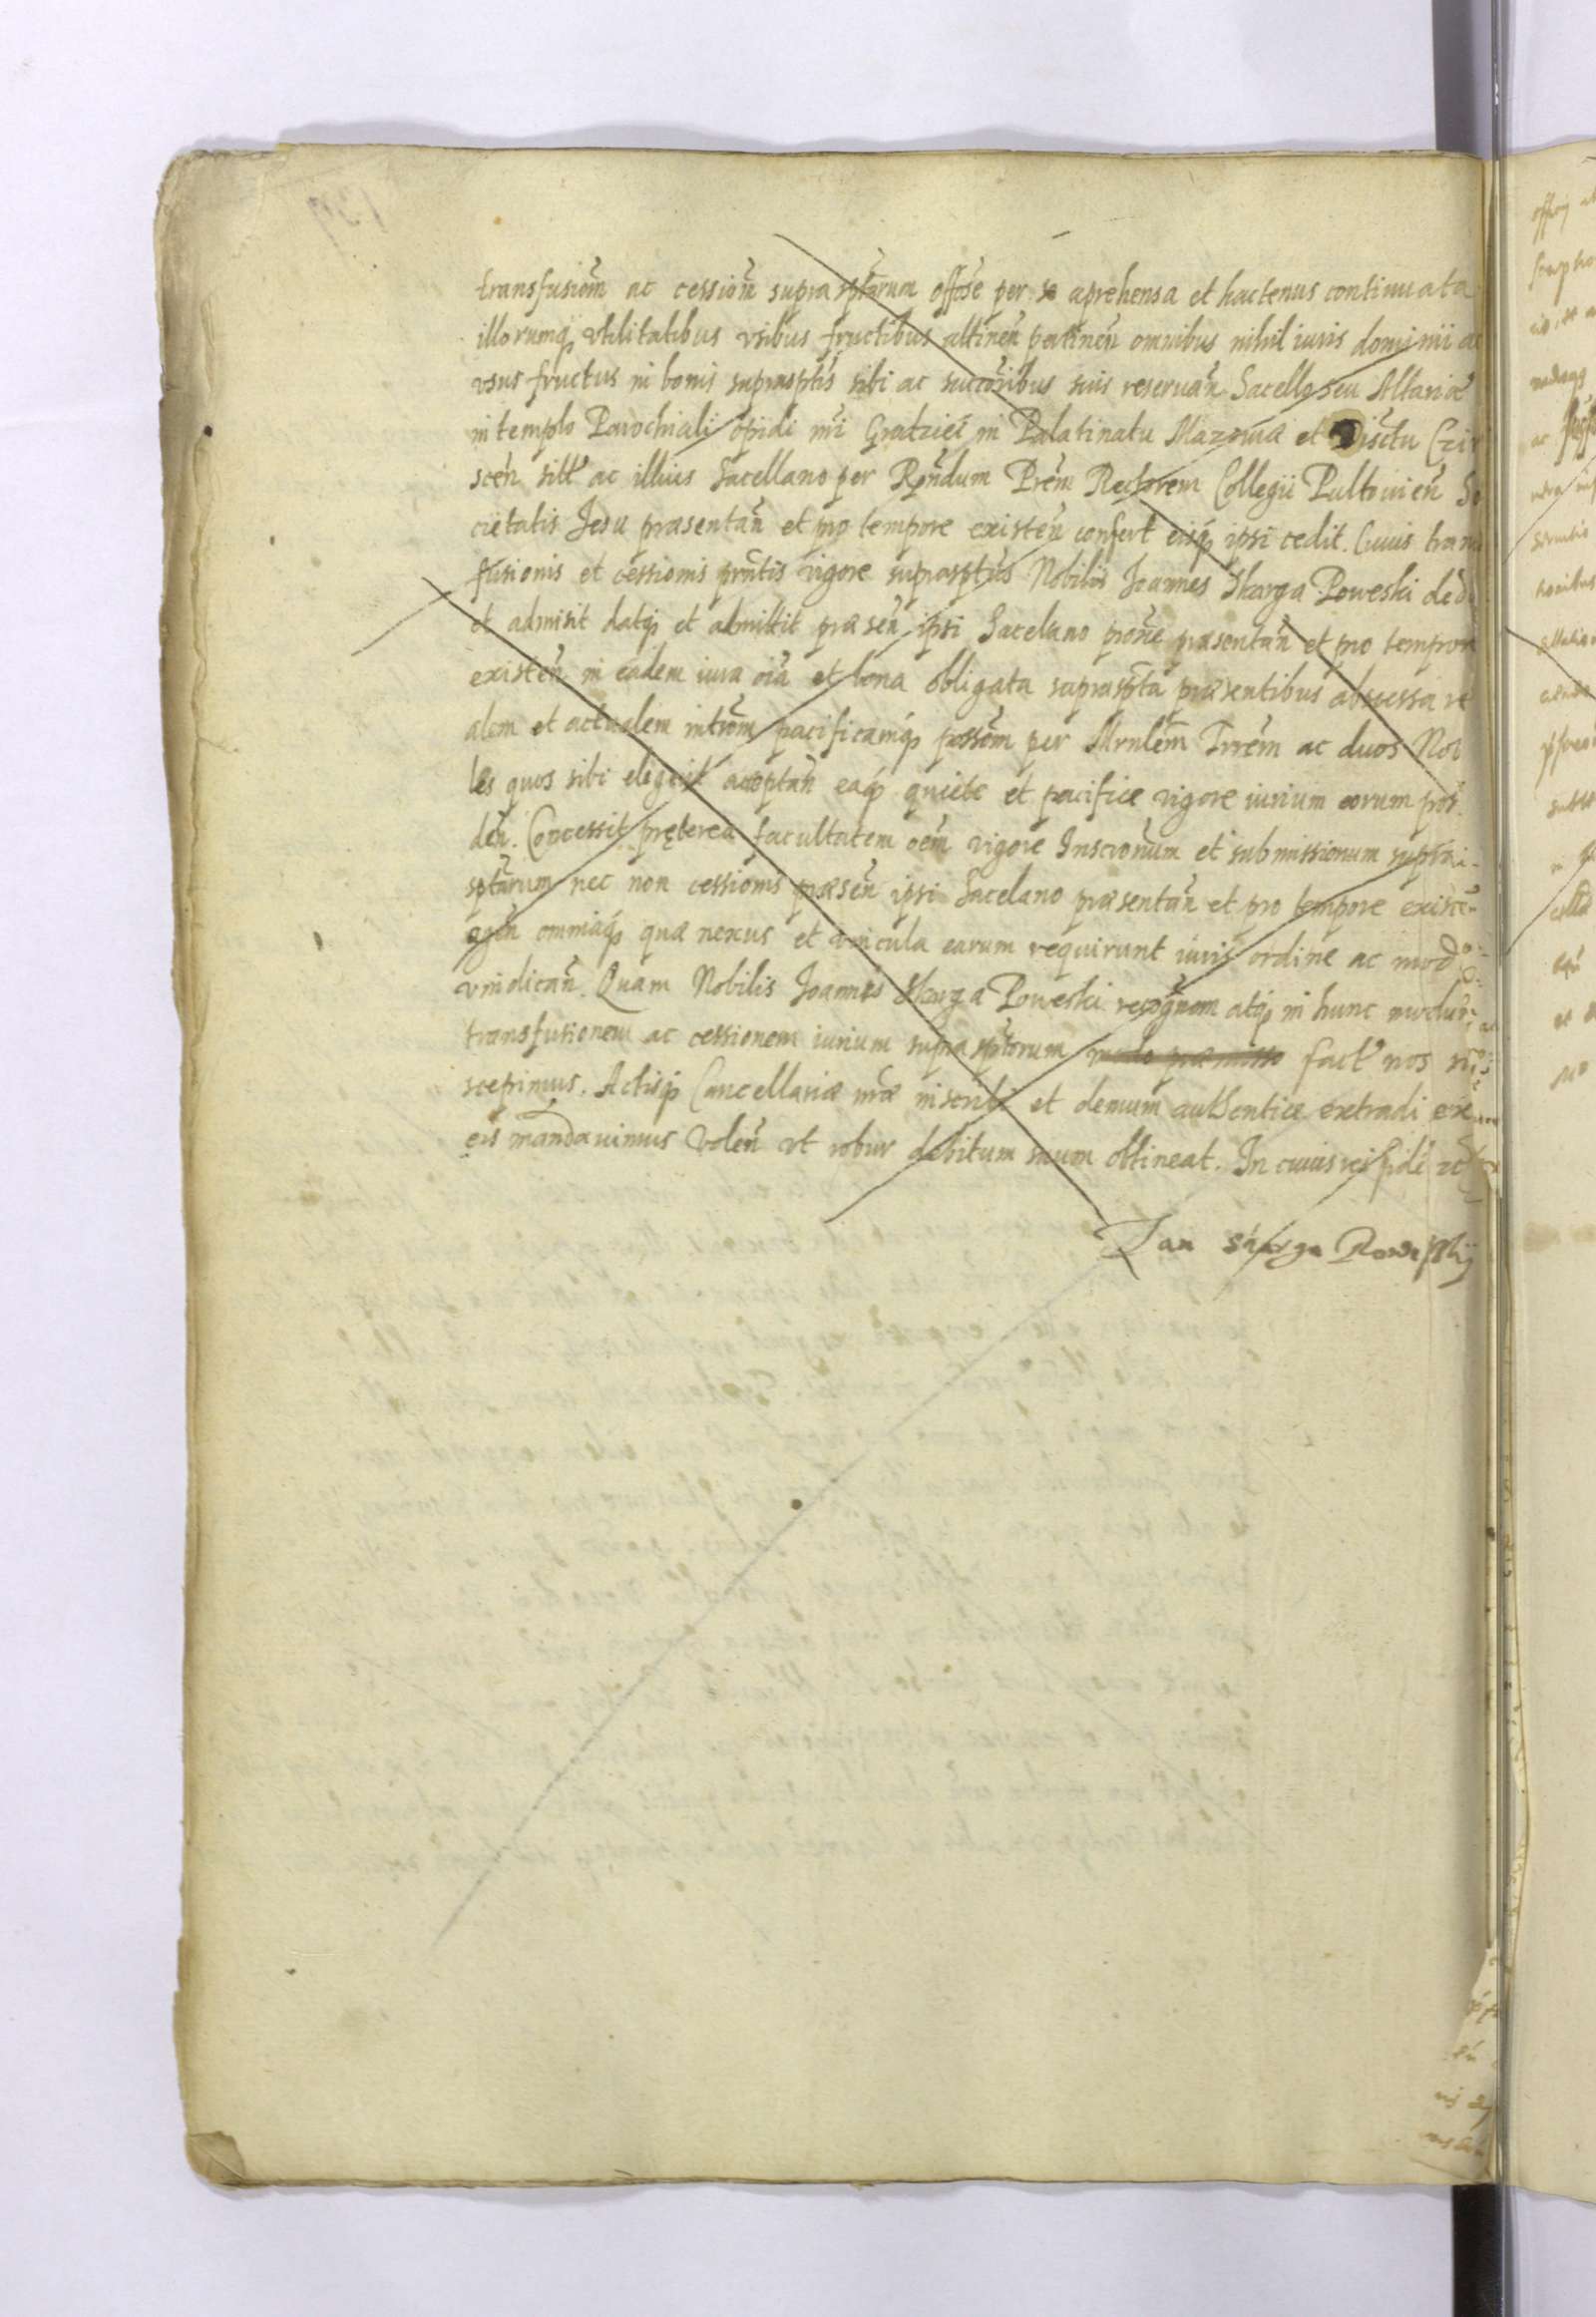 transfusiom̃ ac cessiom̃ suprasptarum offose per se aprehensa et hactenus continuata
illorumq; vtilitatibus vsibus fructibus attineñ pertineñ omnibus nihil iuris dominii ac
vsus fructus in bonis suprasptis sibi ac succoribus suis reseruañ Sacello seu Altariæ
in templo Parochiali opidi nri Grodziec in Palatinatu Mazouiæ et Disctu Czir
sceñ sitt ac illius Sacellano per Rñdum Prem Rectorem Collegii Pultouieñ So
cietatis Jesu præsentañ et pro tempore existeñ confert eisq; ipsi cedit. Cuius trans
fusionis et cessionis prñtis vigore suprasptus Nobilis Joannes Skarga Poweski dedi
et admisit datq; et admittit præseñ ipsi Sacelano præsentañ et pro tempore
existeñ in eadem iura oia et bona obligata supraspta præsentibus abscessa re
alem et actualem introm pacificamq; possom per Mrnlem Trrem ac duos Nob
les quos sibi elegerit acceptañ eaq; quiete et pacifice vigore iurium eorum pos
deñ. Concessit præterea facultatem oem vigore Inscronum et submissionum supra-
sptarum nec non cessionis præseñ ipsi Sacelano præsentañ et pro tempore existeñ
ageñ omniaq; quæ nexus et vincula earum requirunt iuris ordine ac modo
vindicañ. Quam Nobilis Joannis Skarga Poweski recognom atq; in hunc modum
transfusionem ac cessionem iurium suprasptorum modo præmisso fact nos su
scepimus. Actisq; Cancellariæ nræ inscribi et demum authentice extradi ex
eis mandauimus Voleñ vt robur debitum suum obtineat. In cuius rei fide
Jan Skarga Poweskij